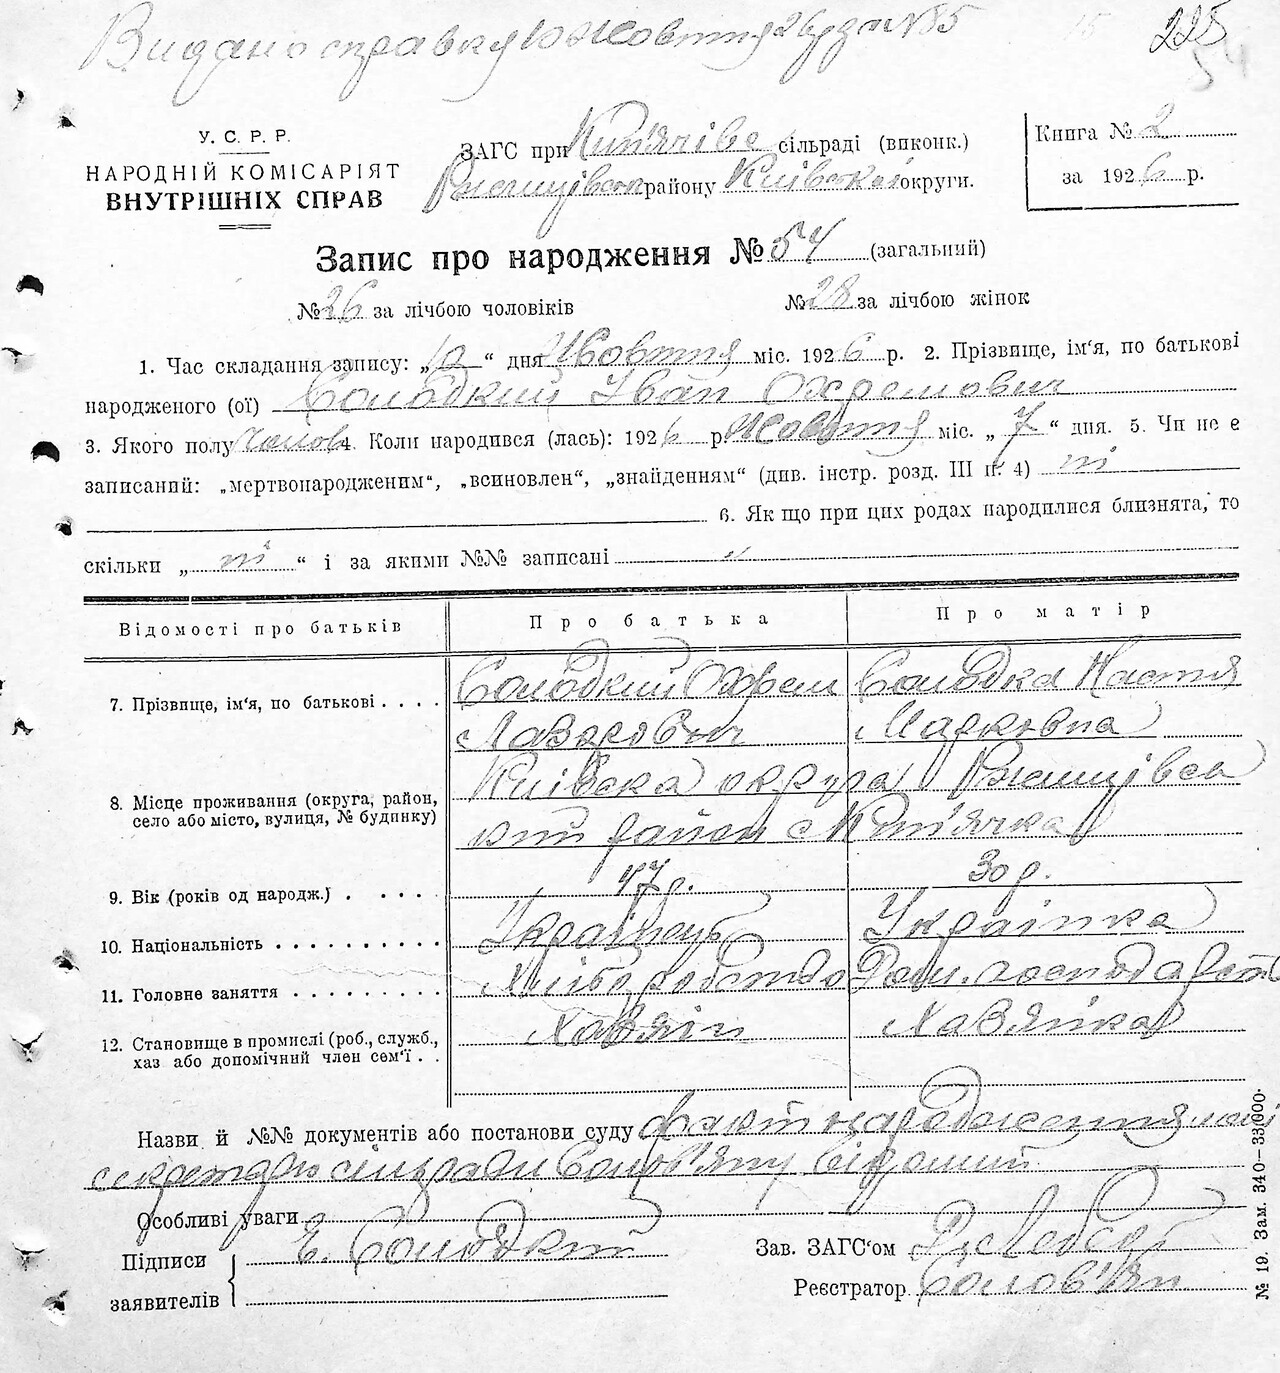 Видано справку 10 Жовтня 26 р за №85
225
54
У. С. Р. Р.
НАРОДНІЙ КОМІСАРІЯТ
ВНУТРІШНІХ СПРАВ
ЗАГС при Кип'ячівс сільраді (виконк.)
Ржищівськ району Київської округи.
Книга № 2
за 1926 р.
Запис про народження № 54 (загальний)
№ 26 за лічбою чоловіків № 28 за лічбою жінок
1. Час складання запису: „10“ дня Жовтня міс. 1926 р. 2. Прізвище, ім'я, по батькові
народженого (ої) Солодкий Іван Охремович
3. Якого полу Чолов 4. Коли народився (лась): 1926 р Жовтня міс. „7“ дня. 5. Чи не є
записаний: „мертвонародженим“, „всиновлен“, „знайденням“ (див. інстр. розд. III п. 4) ні
6. Як що при цих родах народилися близнята, то
скільки „ ні “ і за якими №№ записані "
Відомості про батьків Про батька Про матір
7. Прізвище, ім'я, по батькові . . . . Солодкий Охрем Солодка Настя
Лазарович Марковна
8. Місце проживання (округа, район, село або місто, вулиця, № будинку) Київска округа Ржищівсь
кий район с Кип'ячка
9. Вік (років од народж.) . . . . . 47 р. 30 р.
10. Національність . . . . . . . . . . Українець Українка
11. Головне заняття . . . . . . . . . Хліборобство Дом. господарств
12. Становище в промислі (роб., служб., хаз або допомічний член сем'ї . . Хазяїн Хазяйка
Назви й №№ документів або постанови суду факт народження
секретарю сільради Солов'яну відомий
Особливі уваги
Підписи Е. Солодкий Зав. ЗАГС'ом
заявителів Реєстратор Солов'ян
№ 19. Зам. 340—33.000.